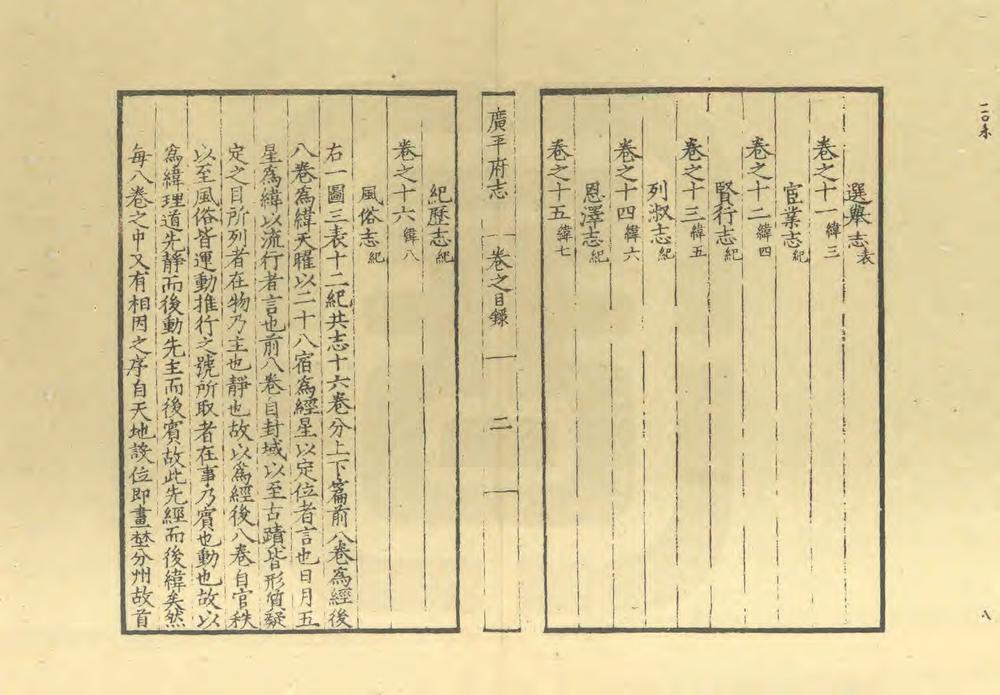 選舉志表
卷之十一緯三
宦業志紀
卷之十二緯四
賢行志紀
卷之十三緯五
列淑志紀
卷之十四緯六
恩澤志紀
卷之十五緯七
廣平府志
卷之目錄
二
紀歷志紀
卷之十六緯八
風俗志紀
右一圖三表十二紀共志十六卷分上下篇前八卷為經後
八卷為緯天曜以二十八宿為經星以定位者言也日月五
星為緯以流行者言也前八卷自封域以至古蹟皆形質凝
定之目所列者在物乃主也靜也故以為經後八卷自官秩
以至風俗皆運動推行之號所取者在事乃賓也動也故以
為緯理道先靜而後動先主而後賓故此先經而後緯矣然
每八卷之中又有相因之序自天地設位即畫埜分州故首
八